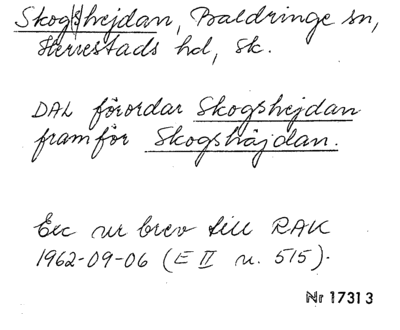 Skogshejdan, Baldringe sn,
Herrestads hd, Sk.
DAL förordar Skogshejdan
framför Skogshäjdan.
Exc ur brev till RAK
1962-09-06 (E II u. 515).
Nr 17313